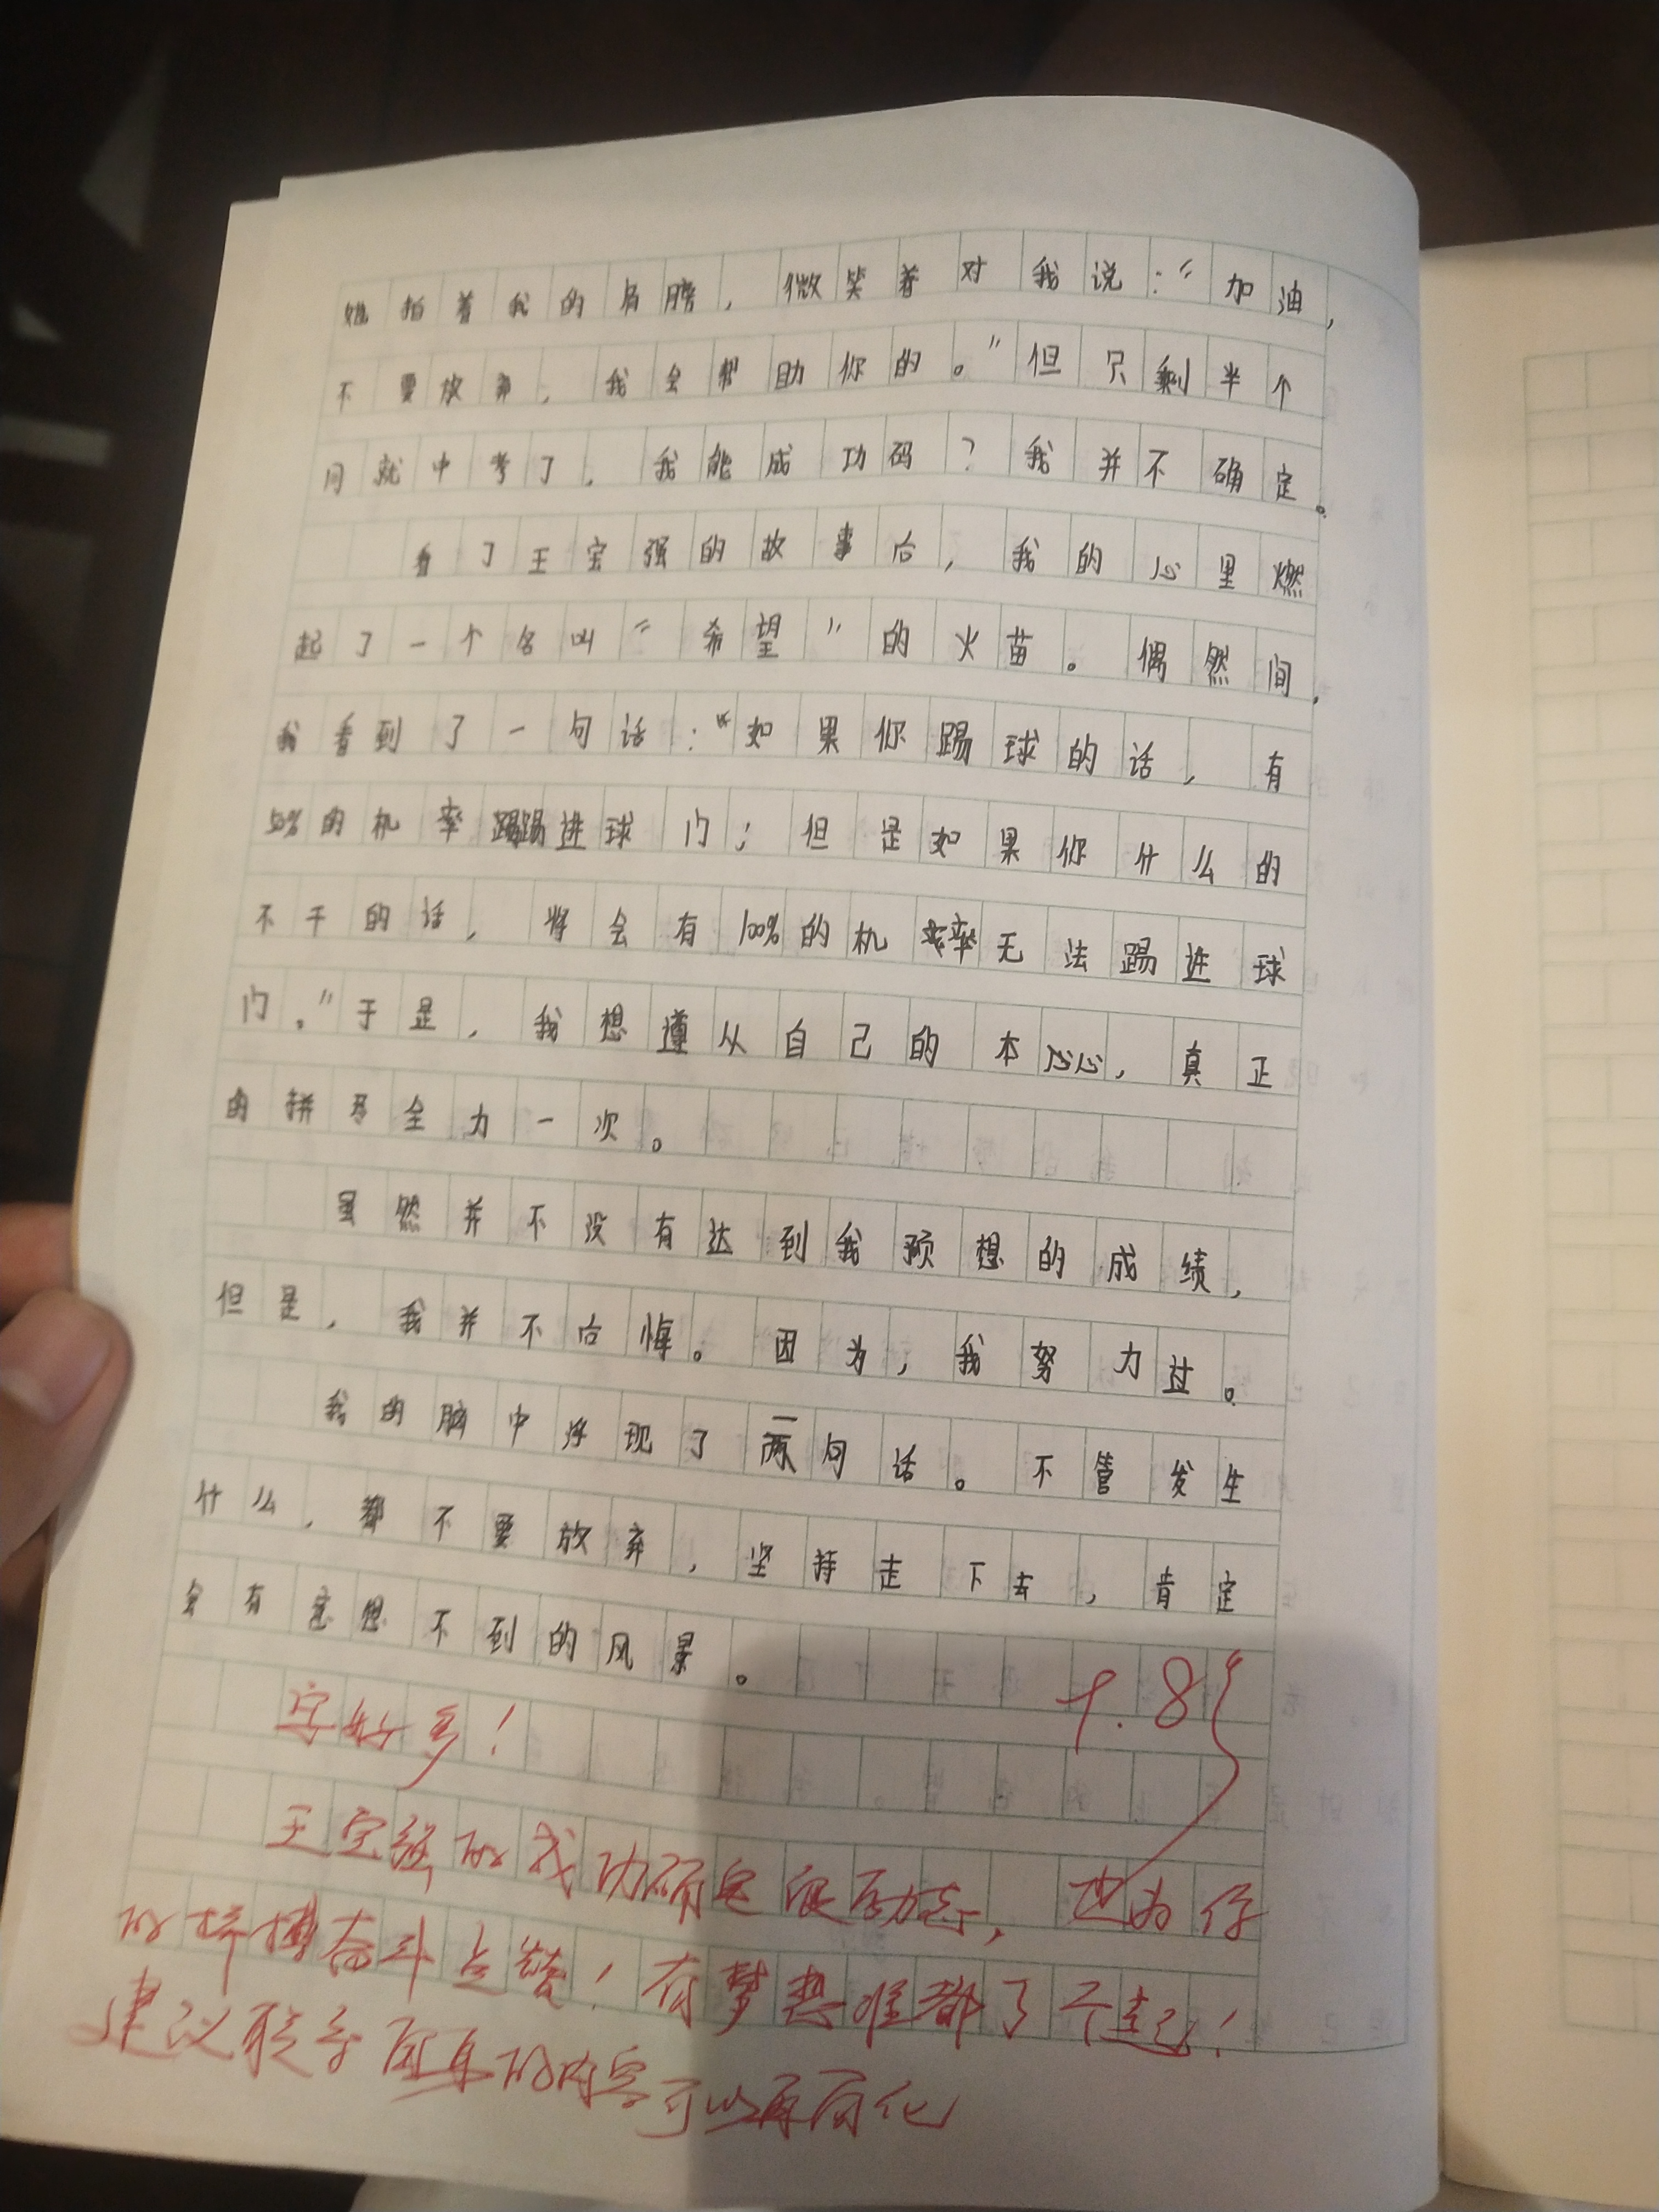 她拍着我的肩膀，微笑着对我说：“加油，
不要放弃，我会帮助你的。”但只剩半个
月就中考了，我能成功码？我并不确定。
看了王宝强的故事后，我的心里燃
起了一个名叫“希望”的火苗。偶然间，
我看到了一句话：“如果你踢球的话，有
50%的机率踢进球门；但是如果你什么的
不干的话，将会有100%的机率无法踢进球
门。”于是，我想遵从自己的本心，真正
的拼尽全力一次。
虽然并不没有达到我预想的成绩，
但是，我并不后悔。因为，我努力过。
我的脑中浮现了一句话。不管发生
什么，都不要放弃，坚持走下去，肯定
会有意想不到的风景。
9.8
字好多！
王宝强的成功确实很励志，也为你
的拼搏奋斗点赞！有梦想谁都了不起！
建议联系自身的内容可以再简化